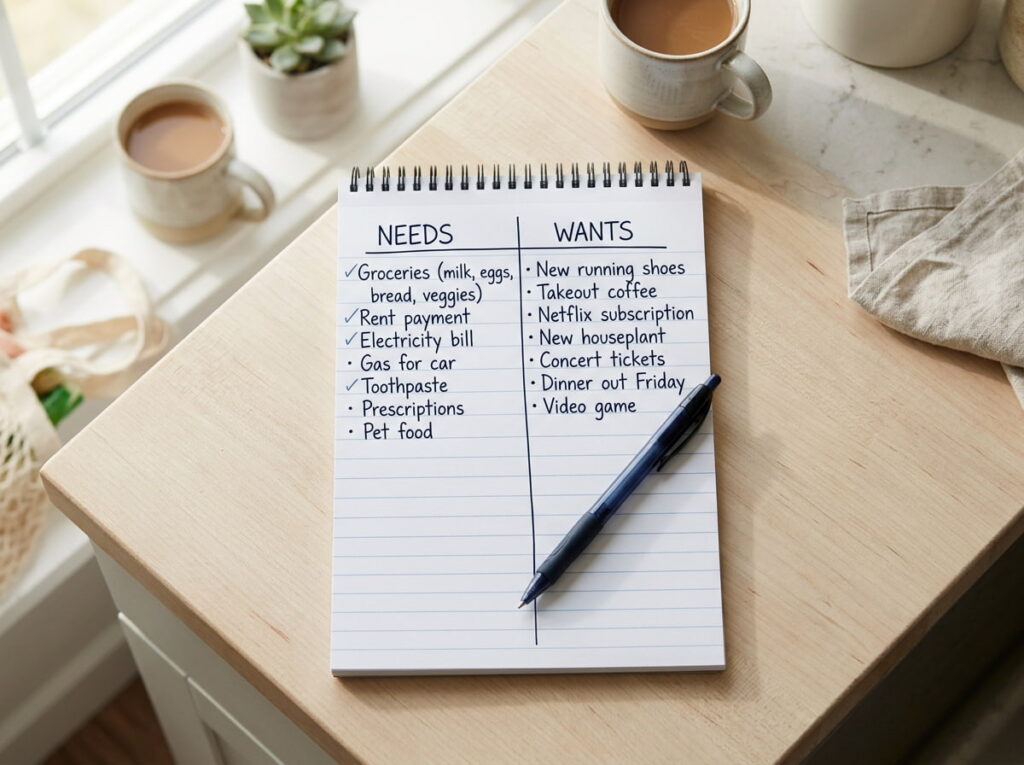 NEEDS
✓Groceries (milk, eggs,
bread, veggies)
✓Rent payment
✓Electricity bill
· Gas for car
✓Toothpaste
· Prescriptions
· Pet food
WANTS
· New running shoes
· Takeout coffee
· Netflix subscription
· New houseplant
· Concert tickets
· Dinner out Friday
· Video game